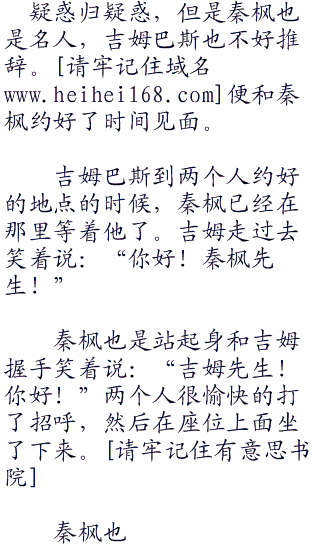 疑惑归疑惑，但是秦枫也
是名人，吉姆巴斯也不好推
辞。[请牢记住域名
www.heihei168.com]便和秦
枫约好了时间见面。
吉姆巴斯到两个人约好
的地点的时候，秦枫已经在
那里等着他了。吉姆走过去
笑着说：“你好！秦枫先
生！”
秦枫也是站起身和吉姆
握手笑着说：“吉姆先生！
你好！”两个人很愉快的打
了招呼，然后在座位上面坐
了下来。[请牢记住有意思书
院]
秦枫也